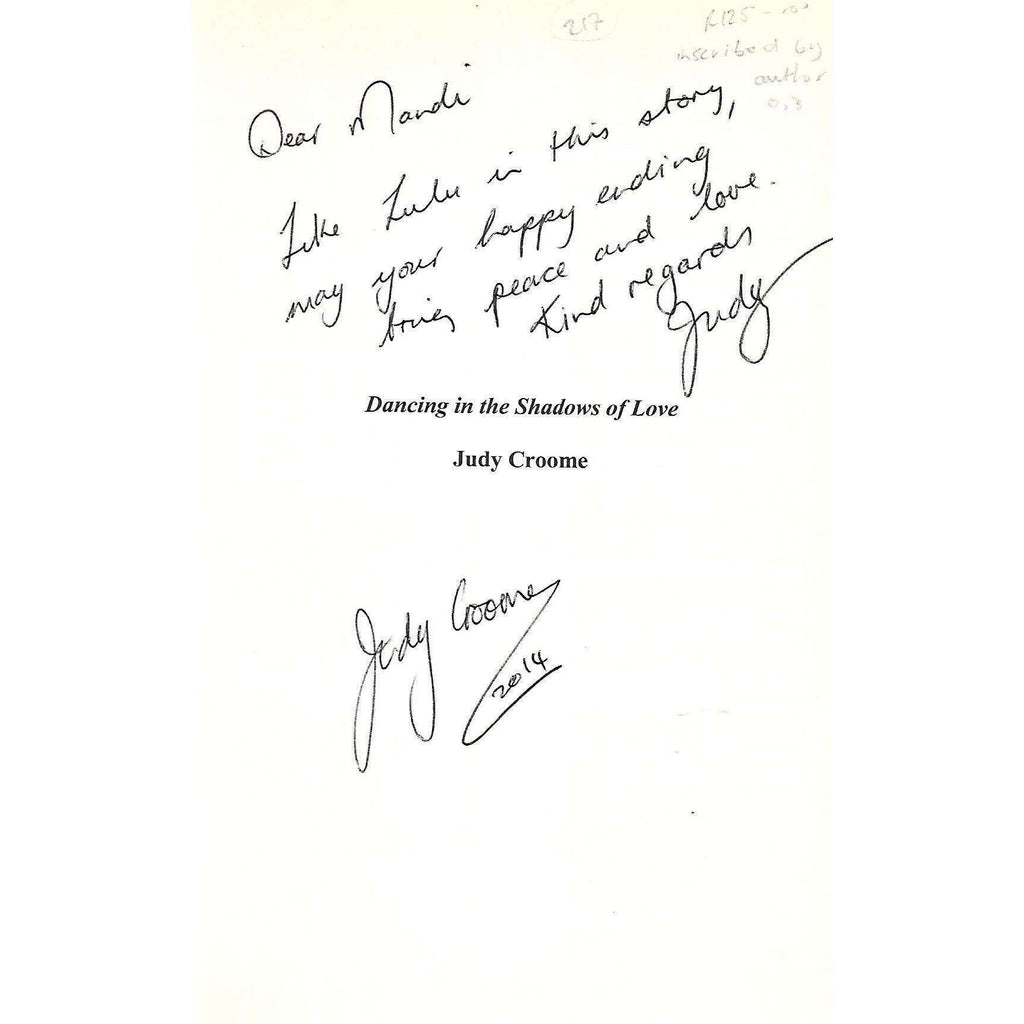 217
R125-00
inscribed by
author
0,3
Dear Mandi
Like Lulu in this story,
may your happy ending
bring peace and love.
Kind regards
Judy
Dancing in the Shadows of Love
Judy Croome
Judy Croome
2014